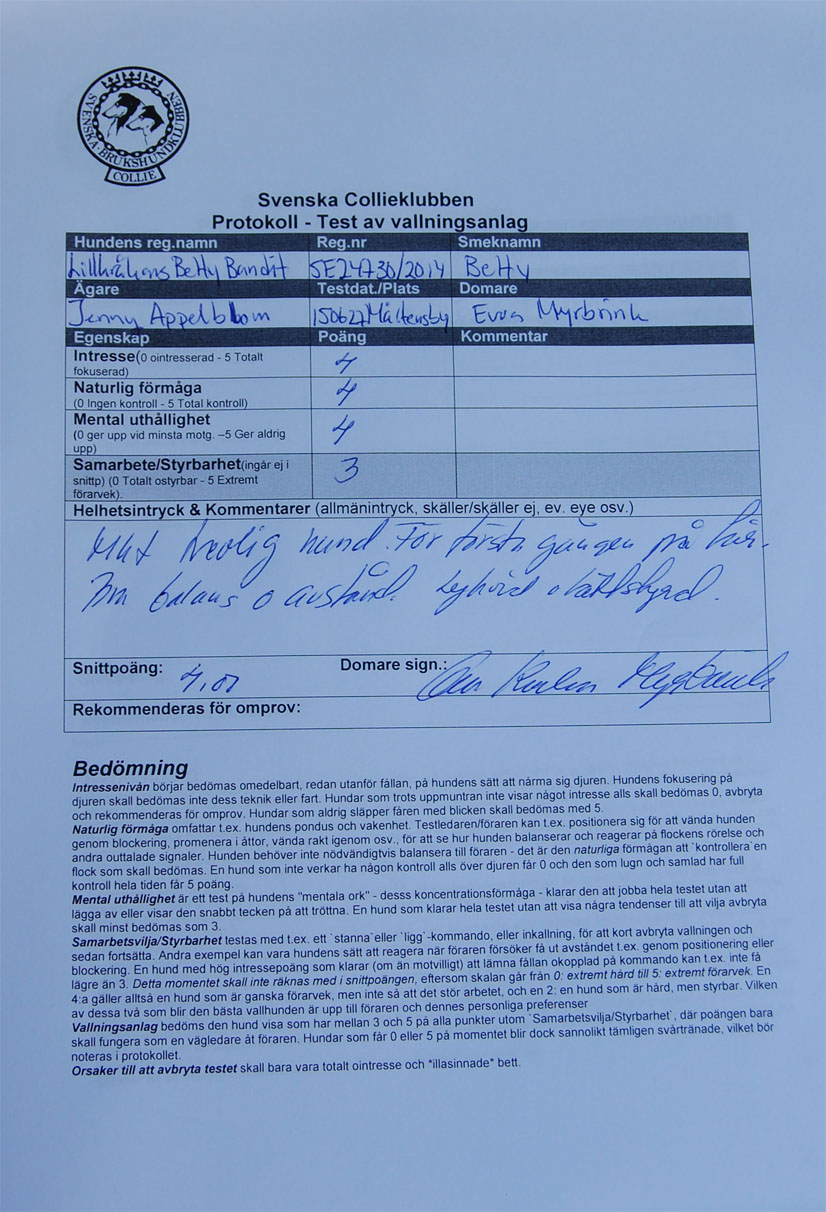 SVENSKA BRUKSHUNDKLUBBEN
COLLIE
Svenska Collieklubben
Protokoll - Test av vallningsanlag
Hundens reg.namn Reg.nr Smeknamn
Lillkråkans Betty Bandit SE24730/2014 Betty
Ägare Testdat./Plats Domare
Jenny Appelblom 150627 Mårtensby Evva Myrbrink
Egenskap Poäng Kommentar
Intresse(0 ointresserad - 5 Totalt
fokuserad) 4
Naturlig förmåga
(0 Ingen kontroll - 5 Total kontroll) 4
Mental uthållighet
(0 ger upp vid minsta motg. –5 Ger aldrig
upp) 4
Samarbete/Styrbarhet(ingår ej i
snittp) (0 Totalt ostyrbar - 5 Extremt
förarvek). 3
Helhetsintryck & Kommentarer (allmänintryck, skäller/skäller ej, ev. eye osv.)
hund. För första gången på får.
Bra balans o avstånd. Lyhörd o lättstyrd.
Snittpoäng: 4,00 Domare sign.:
Rekommenderas för omprov:
Bedömning
Intressenivån börjar bedömas omedelbart, redan utanför fållan, på hundens sätt att närma sig djuren. Hundens fokusering på
djuren skall bedömas inte dess teknik eller fart. Hundar som trots uppmuntran inte visar något intresse alls skall bedömas 0, avbryta
och rekommenderas för omprov. Hundar som aldrig släpper fåren med blicken skall bedömas med 5.
Naturlig förmåga omfattar t.ex. hundens pondus och vakenhet. Testledaren/föraren kan t.ex. positionera sig för att vända hunden
genom blockering, promenera i åttor, vända rakt igenom osv., för att se hur hunden balanserar och reagerar på flockens rörelse och
andra outtalade signaler. Hunden behöver inte nödvändigtvis balansera till föraren - det är den naturliga förmågan att `kontrollera´en
flock som skall bedömas. En hund som inte verkar ha någon kontroll alls över djuren får 0 och den som lugn och samlad har full
kontroll hela tiden får 5 poäng.
Mental uthållighet är ett test på hundens "mentala ork" - desss koncentrationsförmåga - klarar den att jobba hela testet utan att
lägga av eller visar den snabbt tecken på att tröttna. En hund som klarar hela testet utan att visa några tendenser till att vilja avbryta
skall minst bedömas som 3.
Samarbetsvilja/Styrbarhet testas med t.ex. ett `stanna´eller `ligg´-kommando, eller inkallning, för att kort avbryta vallningen och
sedan fortsätta. Andra exempel kan vara hundens sätt att reagera när föraren försöker få ut avståndet t.ex. genom positionering eller
blockering. En hund med hög intressepoäng som klarar (om än motvilligt) att lämna fållan okopplad på kommando kan t.ex. inte få
lägre än 3. Detta momentet skall inte räknas med i snittpoängen, eftersom skalan går från 0: extremt hård till 5: extremt förarvek. En
4:a gäller alltså en hund som är ganska förarvek, men inte så att det stör arbetet, och en 2: en hund som är hård, men styrbar. Vilken
av dessa två som blir den bästa vallhunden är upp till föraren och dennes personliga preferenser
Vallningsanlag bedöms den hund visa som har mellan 3 och 5 på alla punkter utom `Samarbetsvilja/Styrbarhet´, där poängen bara
skall fungera som en vägledare åt föraren. Hundar som får 0 eller 5 på momentet blir dock sannolikt tämligen svårtränade, vilket bör
noteras i protokollet.
Orsaker till att avbryta testet skall bara vara totalt ointresse och *illasinnade* bett.